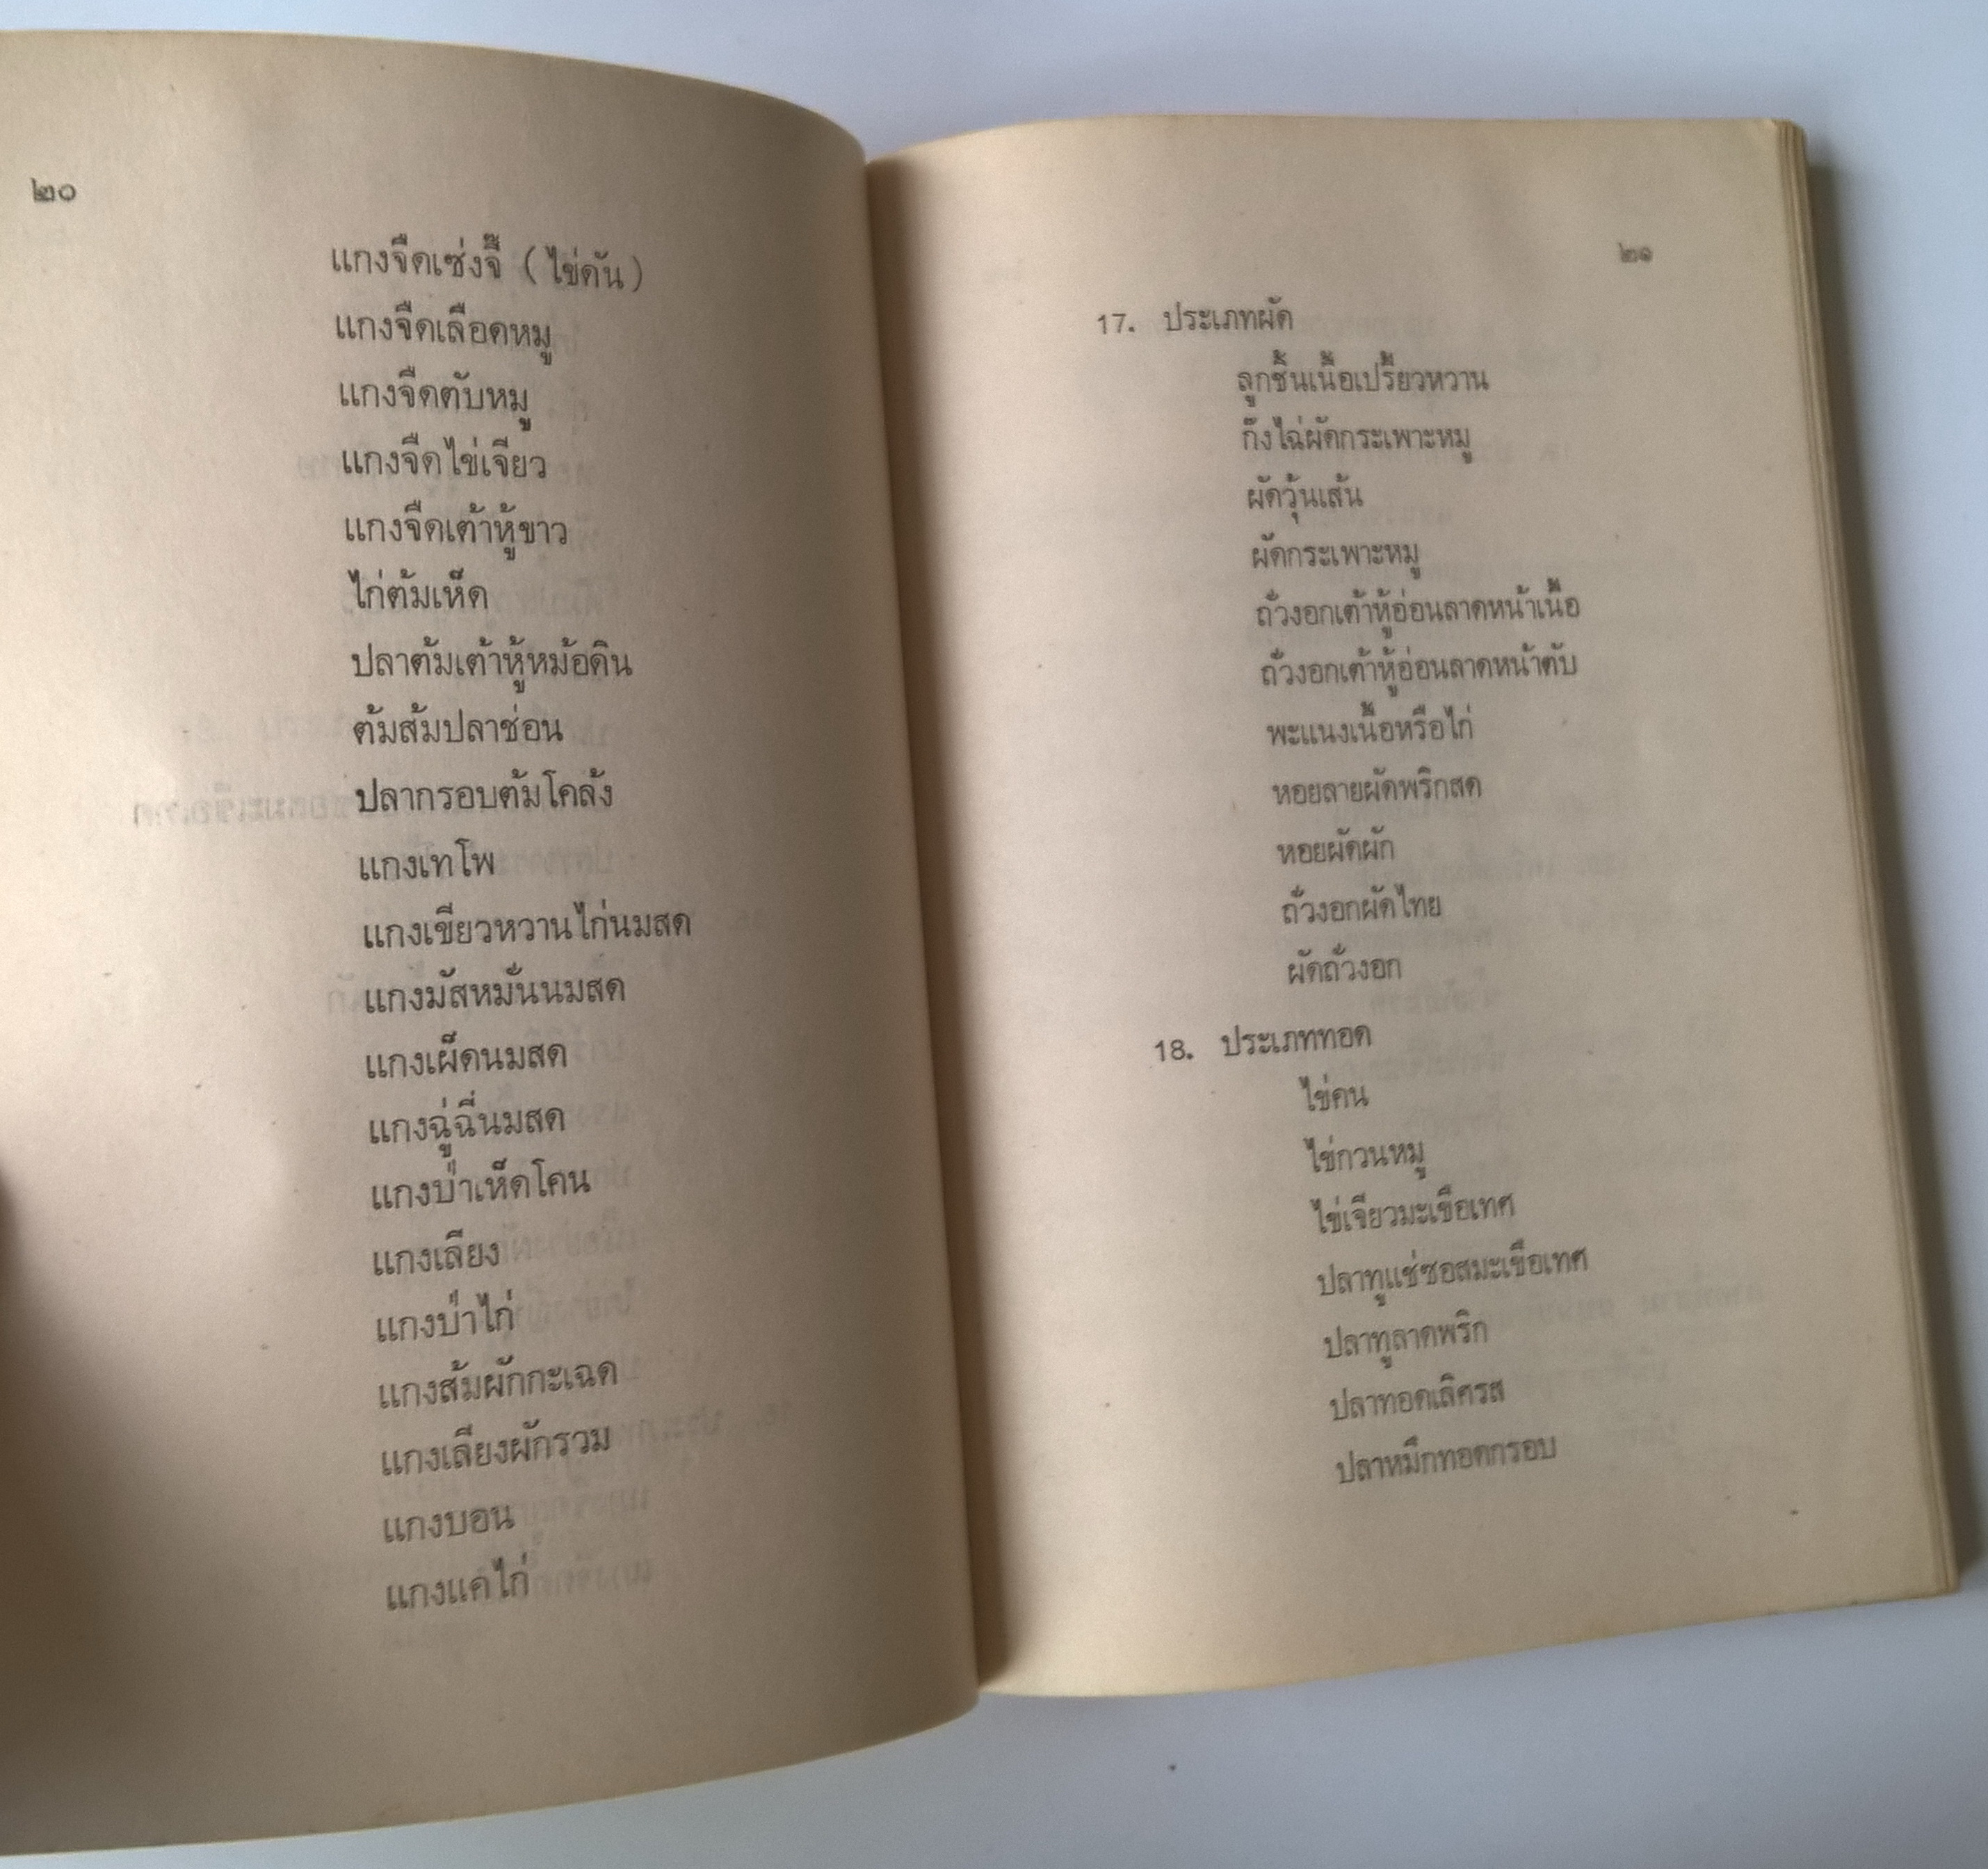 ๒๐
แกงจืดเซ่งจี๊ (ไข่ดัน)
แกงจืดเลือดหมู
แกงจืดตับหมู
แกงจืดไข่เจียว
แกงจืดเต้าหู้ขาว
ไก่ต้มเห็ด
ปลาต้มเต้าหู้หม้อดิน
ต้มส้มปลาช่อน
ปลากรอบต้มโคล้ง
แกงเทโพ
แกงเขียวหวานไก่นมสด
แกงมัสหมั่นนมสด
แกงเผ็ดนมสด
แกงฉู่ฉี่นมสด
แกงป่าเห็ดโคน
แกงเลียง
แกงป่าไก่
แกงส้มผักกะเฉด
แกงเลียงผักรวม
แกงบอน
แกงแคไก่
๒๑
17. ประเภทผัด
ลูกชิ้นเนื้อเปรี้ยวหวาน
กึ๋งไฉ่ผัดกระเพาะหมู
ผัดวุ้นเส้น
ผัดกระเพาะหมู
ถั่วงอกเต้าหู้อ่อนลาดหน้าเนื้อ
ถั่วงอกเต้าหู้อ่อนลาดหน้าตับ
พะแนงเนื้อหรือไก่
หอยลายผัดพริกสด
หอยผัดผัก
ถั่วงอกผัดไทย
ผัดถั่วงอก
18. ประเภททอด
ไข่คน
ไข่กวนหมู
ไข่เจียวมะเขือเทศ
ปลาทูแช่ซอสมะเขือเทศ
ปลาทูลาดพริก
ปลาทอดเลิศรส
ปลาหมึกทอดกรอบ